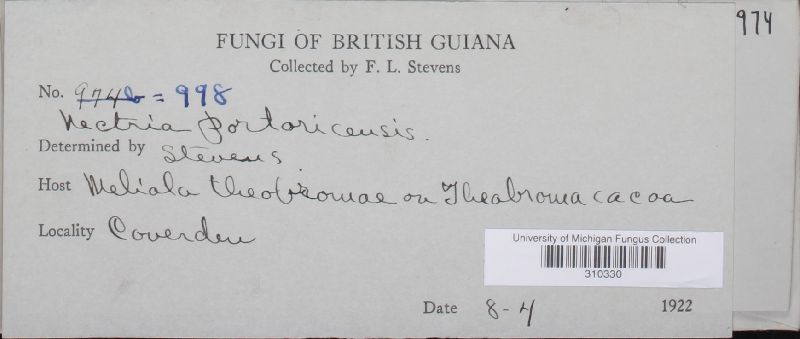 974
FUNGI OF BRITISH GUIANA
Collected by F. L. Stevens
No. 974b = 998
Nectria portoricensis.
Determined by Stevens
Host Meliola theobromae on Theabroma cacoa
Locality Coverden
University of Michigan Fungus Collection
310330
Date 8-4 1922